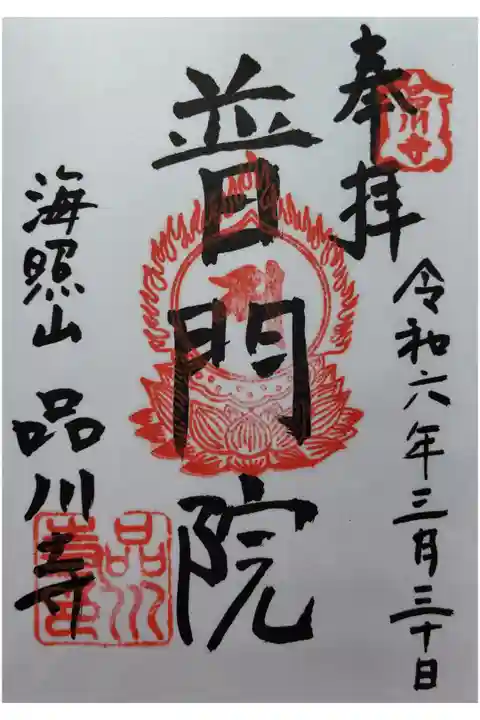 奉拝
品川寺
令和六年三月三十日
普門院
海照山 品川寺